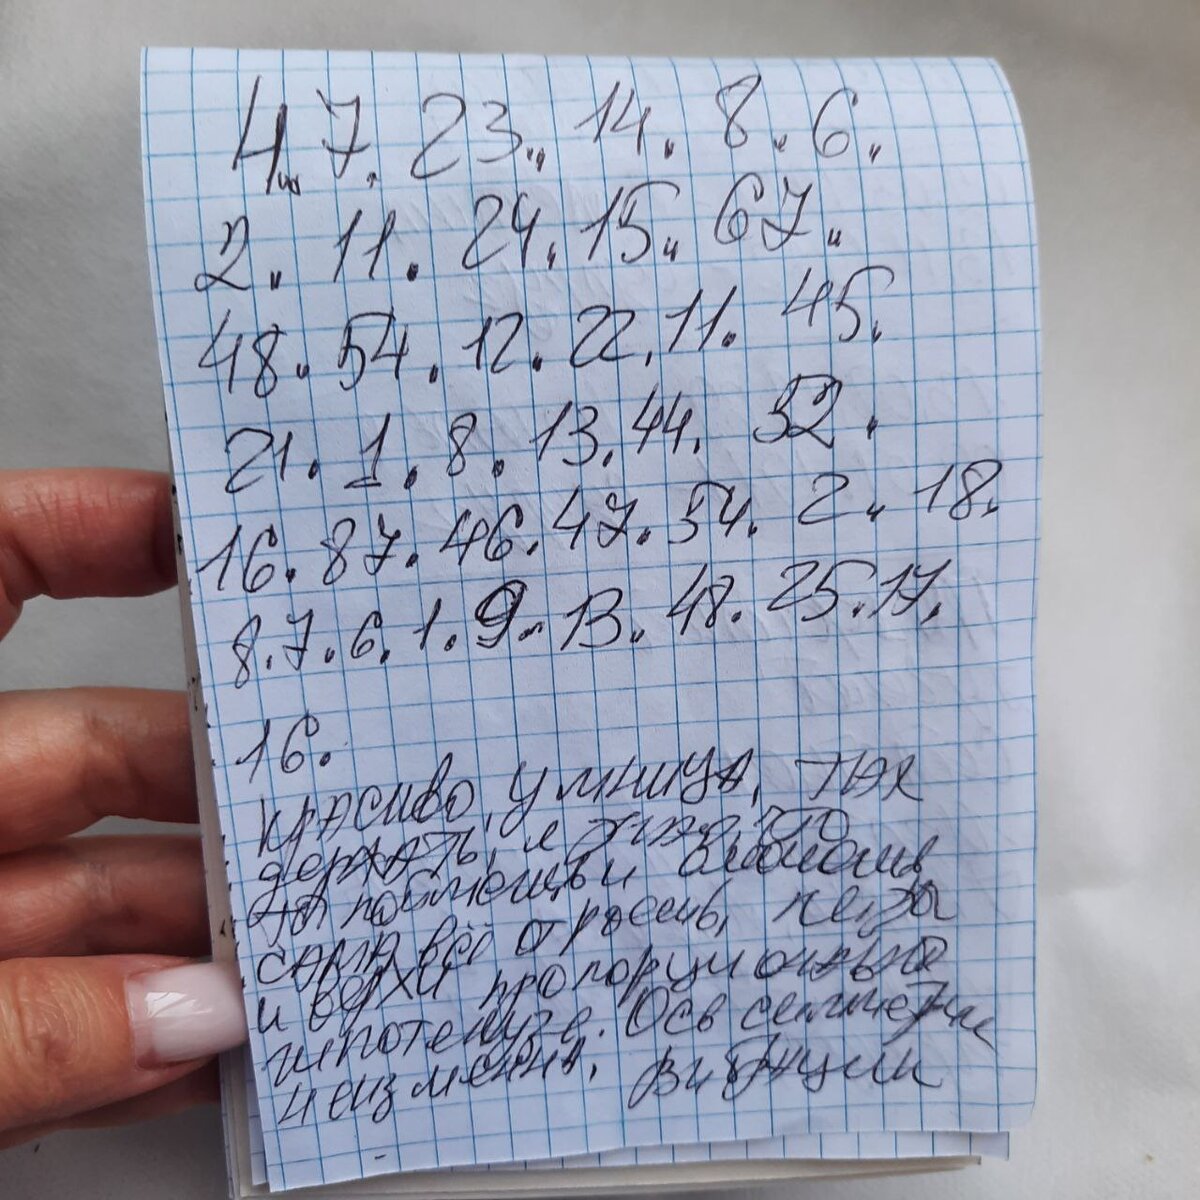 4. 7. 23. 14. 8. 6.
2. 11. 24. 15. 67.
48. 54. 12. 22. 11. 45.
21. 1. 8. 13. 44. 52.
16. 87. 46. 47. 54. 2. 18.
8. 7. 6. 1. 9. 13. 48. 25. 17.
16.
красиво, умница, так
держать, и
сама всё
и верхи пропорционально
гипотенузе. Ось симметрии
неизменна,